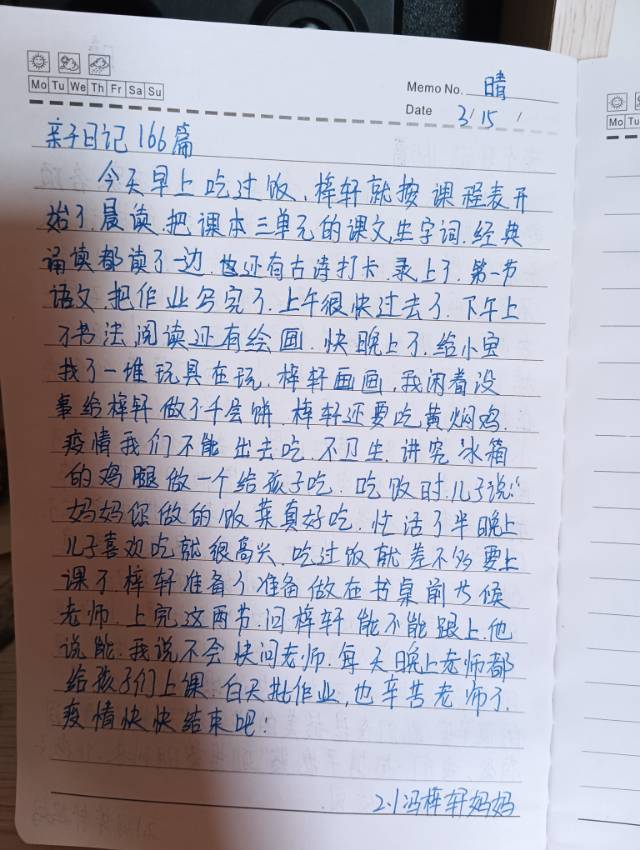 Mo Tu We Th Fr Sa Su
Memo No. 晴
Date 3/15/
亲子日记166篇
今天早上吃过饭、梓轩就按课程表开
始了晨读.把课本三单元的课文,生字词.经典
诵读都读了一边.也还有古诗打卡.录上了.第一节
语文.把作业写完了.上午很快过去了.下午上
了书法阅读还有绘画.快晚上了.给小宝
找了一堆玩具在玩.梓轩画画.我闲着没
事给梓轩做了千层饼.梓轩还要吃黄焖鸡.
疫情我们不能出去吃.不卫生.讲究冰箱
的鸡腿做一个给孩子吃.吃饭时.儿子说:“
妈妈你做的饭菜真好吃.忙活了半晚上
儿子喜欢吃就很高兴.吃过饭就差不多要上
课了.梓轩准备了准备做在书桌前等候
老师.上完这两节.问梓轩能不能跟上.他
说能.我说不会快问老师.每天晚上老师都
给孩子们上课.白天批作业,也辛苦老师了.
疫情快快结束吧!
2.1冯梓轩妈妈
Mo Tu